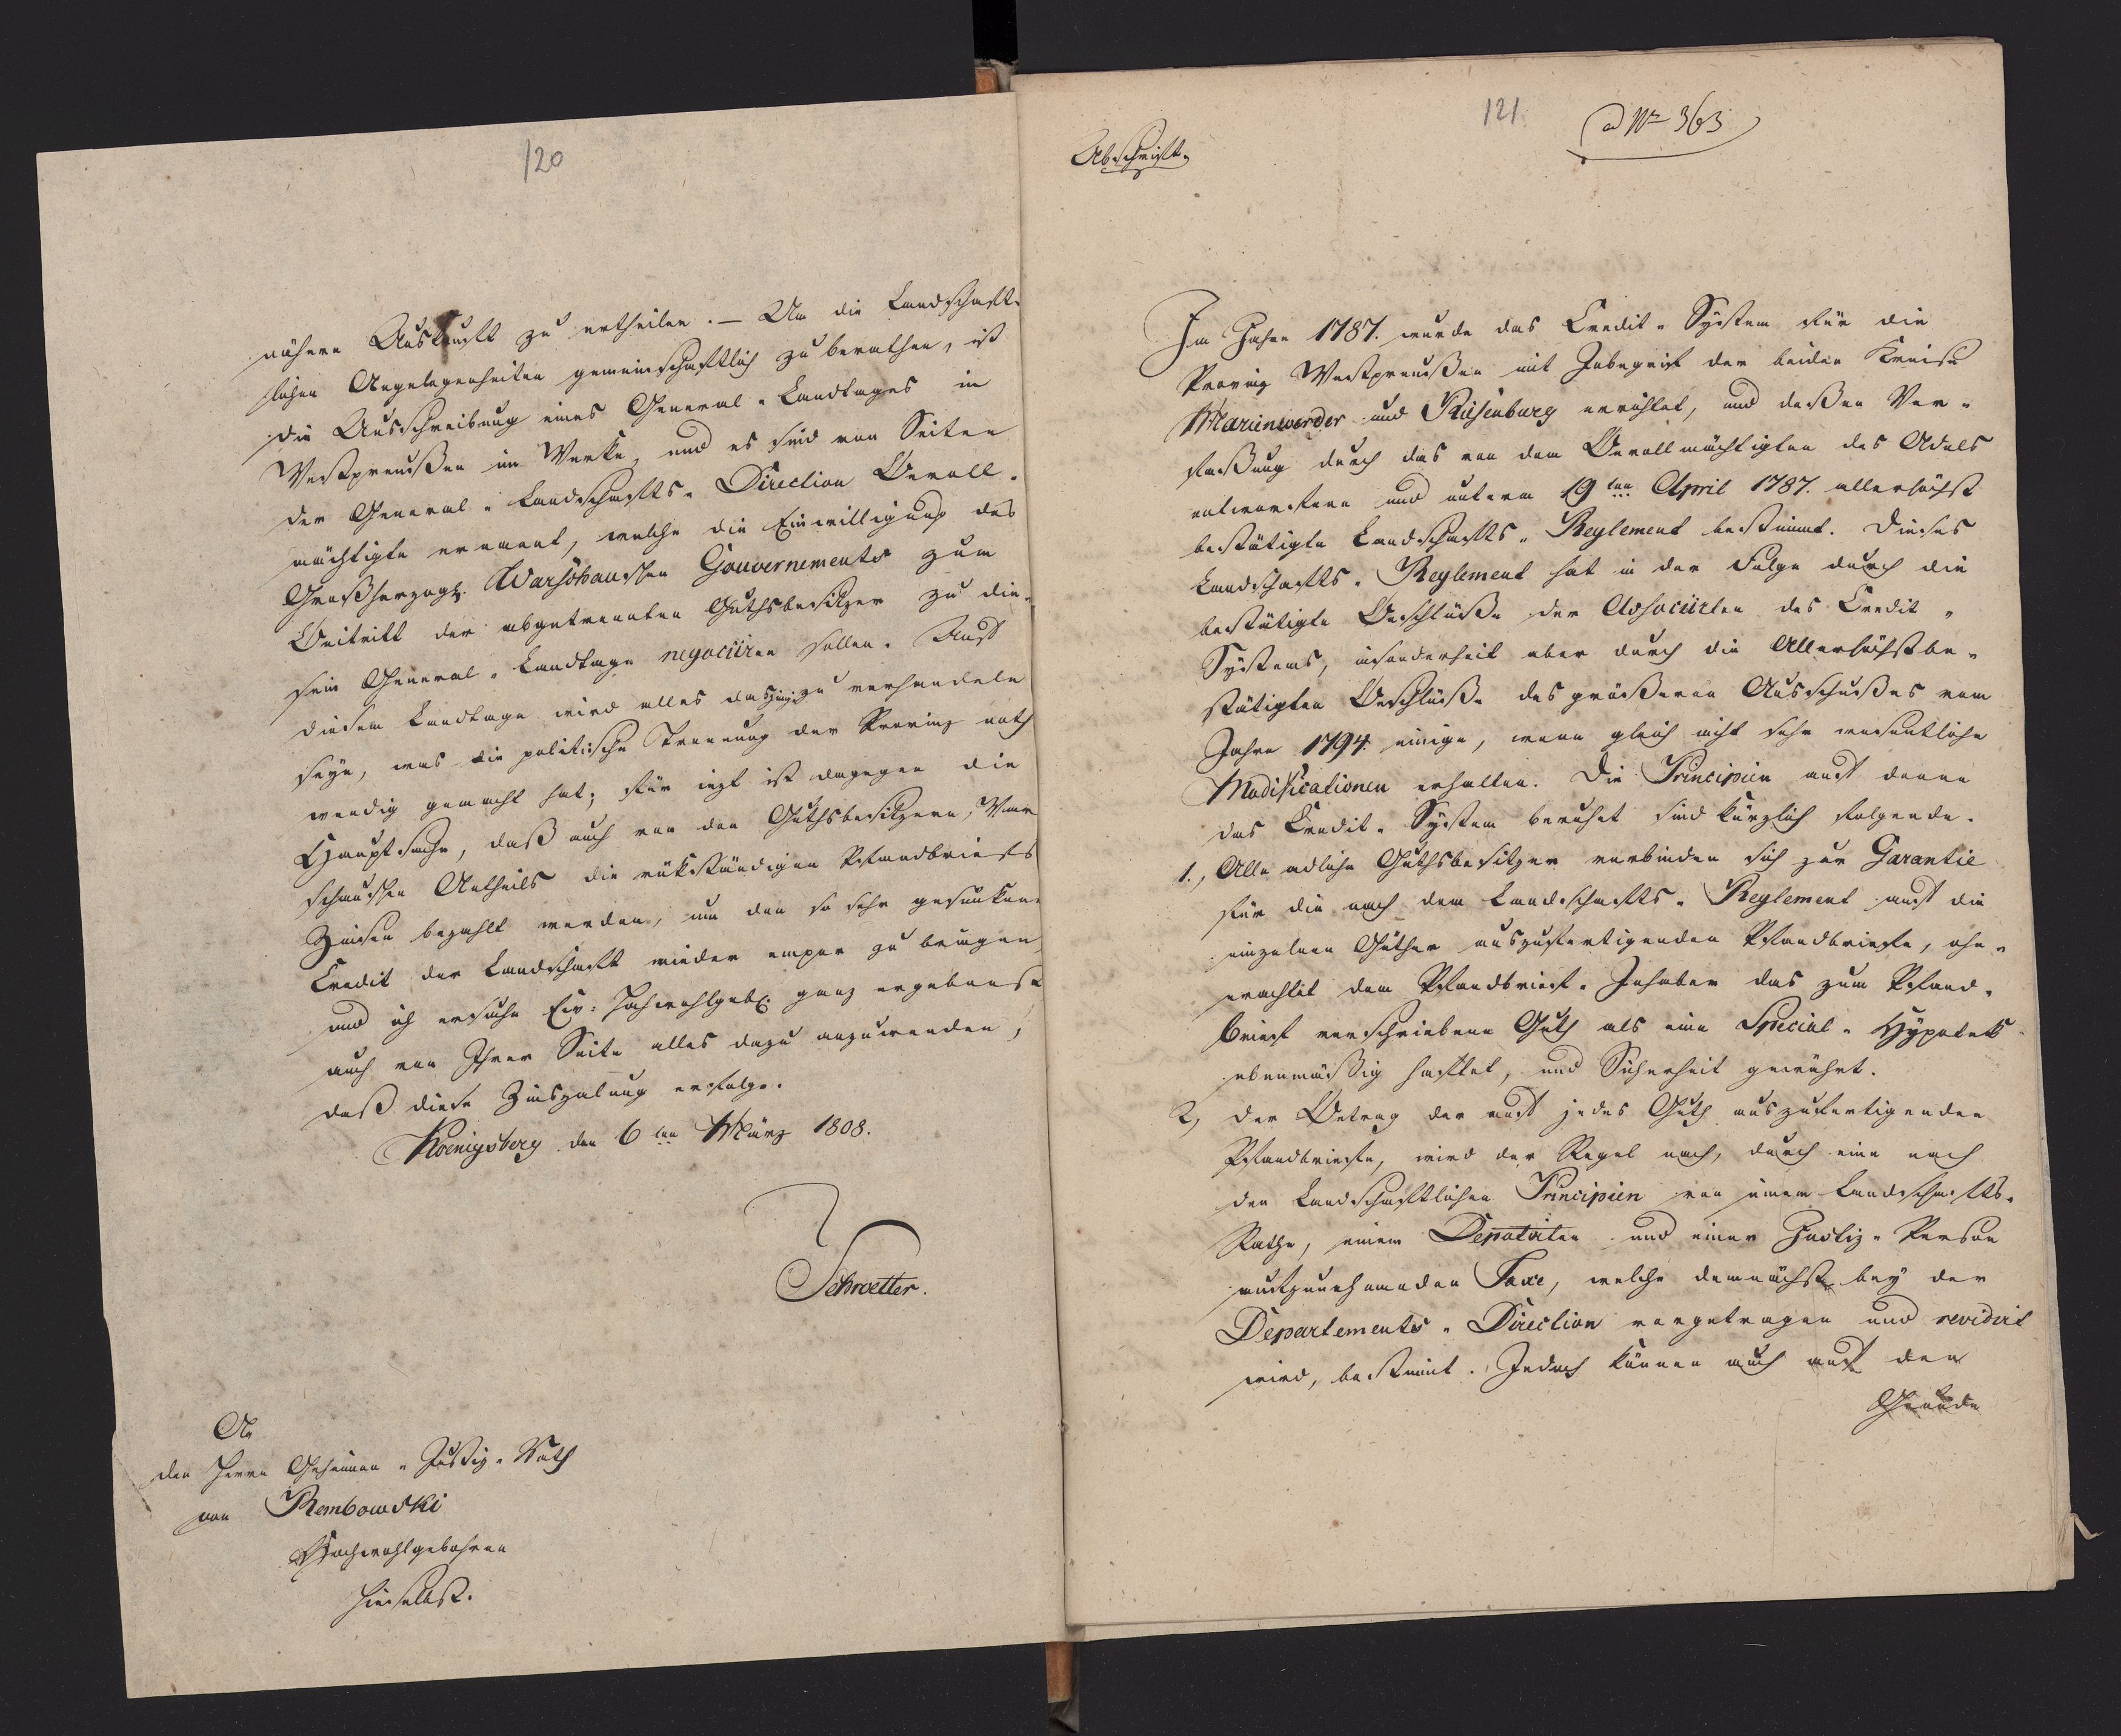 120
nähere Auskunft zu ertheilen. — Um die Landschaft-
lichen Angelegenheiten gemeinschaftlich zu berathen, ist
die Ausschreibung eines General-Landtages in
Westpreußen im Werke, und es sind von Seiten
der General-Landschafts-Direction Bevoll-
mächtigte ernannt, welche die Einwilligung des
Großherzogl. Warschauschen Gouvernements zum
Beitritt der abgetrennten Guthsbesitzer zu die-
sem General-Landtage negociiren sollen. Auf
diesem Landtage wird alles dasjenige zu verhandeln
seyn, was die politische Trennung der Provinz noth
wendig gemacht hat; für jezt ist dagegen die
Hauptsache, daß auch von den Guthsbesitzern, War
schauschen Antheils die rükständigen Pfandbriefs
Zinsen bezahlt werden, um den so sehr gesunkenen
Credit der Landschaft wieder empor zu bringen,
und ich ersuche Ew: Hochwohlgeb. ganz ergebenst
auch von Ihrer Seite alles dazu anzuwenden,
daß diese Zinszalung erfolge.
Koenigsberg den 6ten März 1808.
Schroetter.
An
den Herrn Geheimen-Justiz-Rath
von Rembowski
Hochwohlgebohren
hieselbst.
121
ad Nr 363
Abschrift.
Im Jahre 1787. wurde das Credit-System für die
Provinz Westpreußen mit Inbegrif der beiden Kreise
Marienwerder und Riesenburg errichtet, und deßen Ver-
faßung durch das von dem Bevollmächtigten des Adels
entworfene und unterm 19ten April 1787. allerhöchst
bestätigte Landschafts-Reglement bestimmt. Dieses
Landschafts-Reglement hat in der Folge durch die
bestätigte Beschlüße der Associirten des Credit-
Systems, insonderheit aber durch die Allerhöchstbe-
stätigten Beschlüße des größeren Ausschußes vom
Jahre 1794. einige, wenn gleich nicht sehr wesentliche
Modificationen erhalten. Die Principien auf denen
das Credit-System beruhet sind kürzlich folgende.
1., Alle adliche Guthsbesitzer verbinden sich zur Garantie
für die nach dem Landschafts-Reglement auf die
einzelnen Güther auszufertigenden Pfandbriefe, ohn-
erachtet dem Pfandbrief-Inhaber das zum Pfand-
brief verschriebene Guth als eine Special-Hypotek
ebenmäßig haftet, und Sicherheit gewährt.
2, Der Betrag der auf jedes Guth auszufertigenden
Pfandbriefe, wird der Regel nach, durch eine nach
den Landschaftlichen Principien von einem Landschafts-
Rathe, einem Deputirten und einer Justiz-Person
aufzunehmenden Taxe, welche demnächst bey der
Departements-Direction vorgetragen und revidirt
wird, bestimt. Jedoch können auch auf den
Grunde